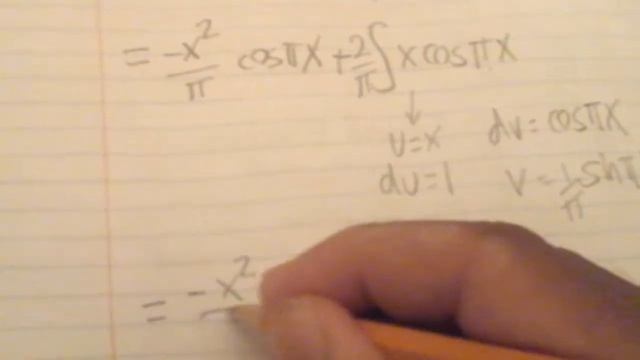 = -x²/π cosπx + 2/π ∫ x cosπx
↓
u=x dv= cosπx
du=1 v= 1/π sin π
= -x²